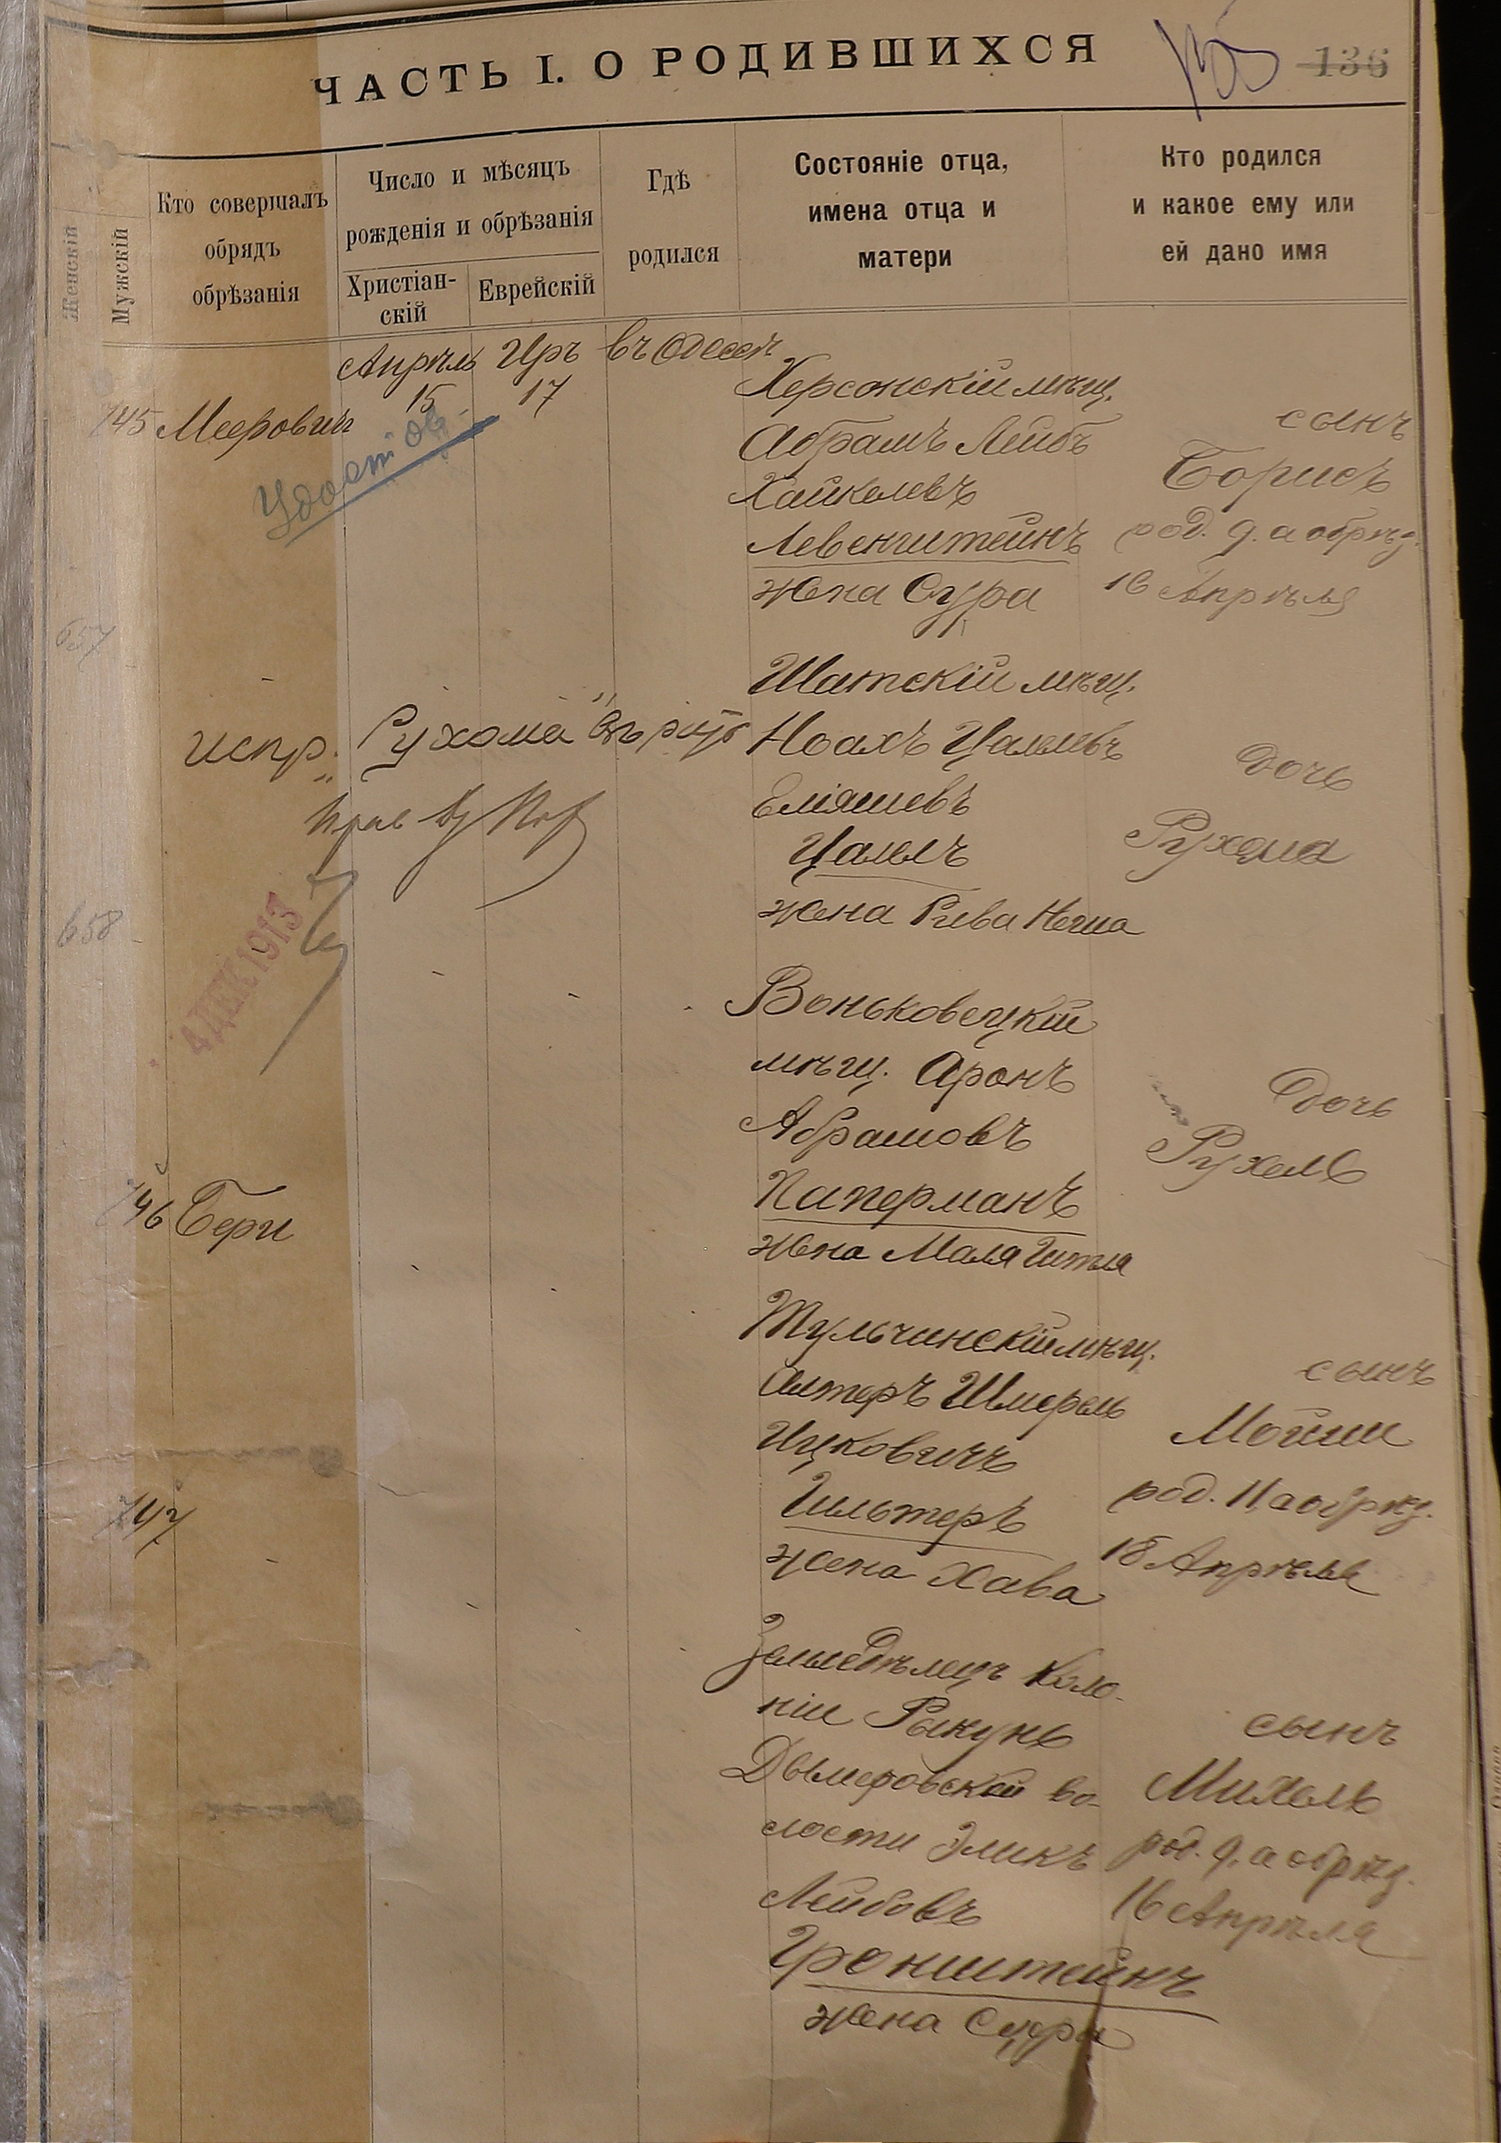 136
ЧАСТЬ I. О РОДИВШИХСЯ
Женскій
Мужскій
Кто совершалъ
обрядъ
обрѣзанія
Число и мѣсяцъ
рожденія и обрѣзанія
Христіан-
скій
Еврейскій
Гдѣ
родился
Состояніе отца,
имена отца и
матери
Кто родился
и какое ему или
ей дано имя
Апрѣль Иръ въ Одессѣ
15 17
745 Мееровичъ
Удостов.
Херсонскій мѣщ.
Абрамъ Лейбъ
Хайкелевъ
Левенштейнъ
жена Сура
сынъ
Борисъ
род. 9. а обрѣз.
16 Апрѣля
657
Шатскій мѣщ.
Ноахъ Цалелевъ
Еліяшевъ
Цалелъ
жена Рива Неша
дочь
Рухома
испр. "Рухома"
658
4 ДЕК 1913
Воньковецкій
мѣщ. Аронъ
Абрамовъ
Паперманъ
жена Маля Гитля
дочь
Рухель
746 Бери
Тульчинскій мѣщ.
Алтеръ Шмерель
Ицковичъ
Гильтеръ
жена Хава
сынъ
Мойши
род. 11, а обрѣз.
18 Апрѣля
747
Земледѣлецъ коло-
ніи Рыкунь
Дымеровской во-
лости Эликъ
Лейбовъ
Гронштейнъ
жена Сура
сынъ
Михель
род. 9. а обрѣз.
16 Апрѣля